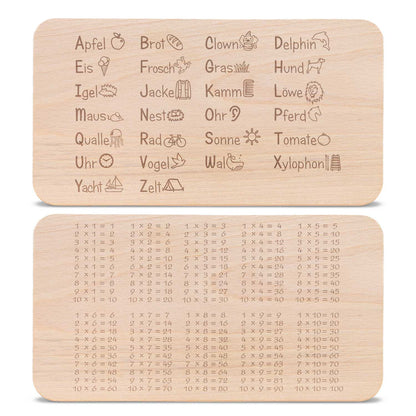 Apfel Brot Clown Delphin
Eis Frosch Gras Hund
Igel Jacke Kamm Löwe
Maus Nest Ohr Pferd
Qualle Rad Sonne Tomate
Uhr Vogel Wal Xylophon
Yacht Zelt
1 x 1 = 1 1 x 2 = 2 1 x 3 = 3 1 x 4 = 4 1 x 5 = 5
2 x 1 = 2 2 x 2 = 4 2 x 3 = 6 2 x 4 = 8 2 x 5 = 10
3 x 1 = 3 3 x 2 = 6 3 x 3 = 9 3 x 4 = 12 3 x 5 = 15
4 x 1 = 4 4 x 2 = 8 4 x 3 = 12 4 x 4 = 16 4 x 5 = 20
5 x 1 = 5 5 x 2 = 10 5 x 3 = 15 5 x 4 = 20 5 x 5 = 25
6 x 1 = 6 6 x 2 = 12 6 x 3 = 18 6 x 4 = 24 6 x 5 = 30
7 x 1 = 7 7 x 2 = 14 7 x 3 = 21 7 x 4 = 28 7 x 5 = 35
8 x 1 = 8 8 x 2 = 16 8 x 3 = 24 8 x 4 = 32 8 x 5 = 40
9 x 1 = 9 9 x 2 = 18 9 x 3 = 27 9 x 4 = 36 9 x 5 = 45
10 x 1 = 10 10 x 2 = 20 10 x 3 = 30 10 x 4 = 40 10 x 5 = 50
1 x 6 = 6 1 x 7 = 7 1 x 8 = 8 1 x 9 = 9 1 x 10 = 10
2 x 6 = 12 2 x 7 = 14 2 x 8 = 16 2 x 9 = 18 2 x 10 = 20
3 x 6 = 18 3 x 7 = 21 3 x 8 = 24 3 x 9 = 27 3 x 10 = 30
4 x 6 = 24 4 x 7 = 28 4 x 8 = 32 4 x 9 = 36 4 x 10 = 40
5 x 6 = 30 5 x 7 = 35 5 x 8 = 40 5 x 9 = 45 5 x 10 = 50
6 x 6 = 36 6 x 7 = 42 6 x 8 = 48 6 x 9 = 54 6 x 10 = 60
7 x 6 = 42 7 x 7 = 49 7 x 8 = 56 7 x 9 = 63 7 x 10 = 70
8 x 6 = 48 8 x 7 = 56 8 x 8 = 64 8 x 9 = 72 8 x 10 = 80
9 x 6 = 54 9 x 7 = 63 9 x 8 = 72 9 x 9 = 81 9 x 10 = 90
10 x 6 = 60 10 x 7 = 70 10 x 8 = 80 10 x 9 = 90 10 x 10 = 100